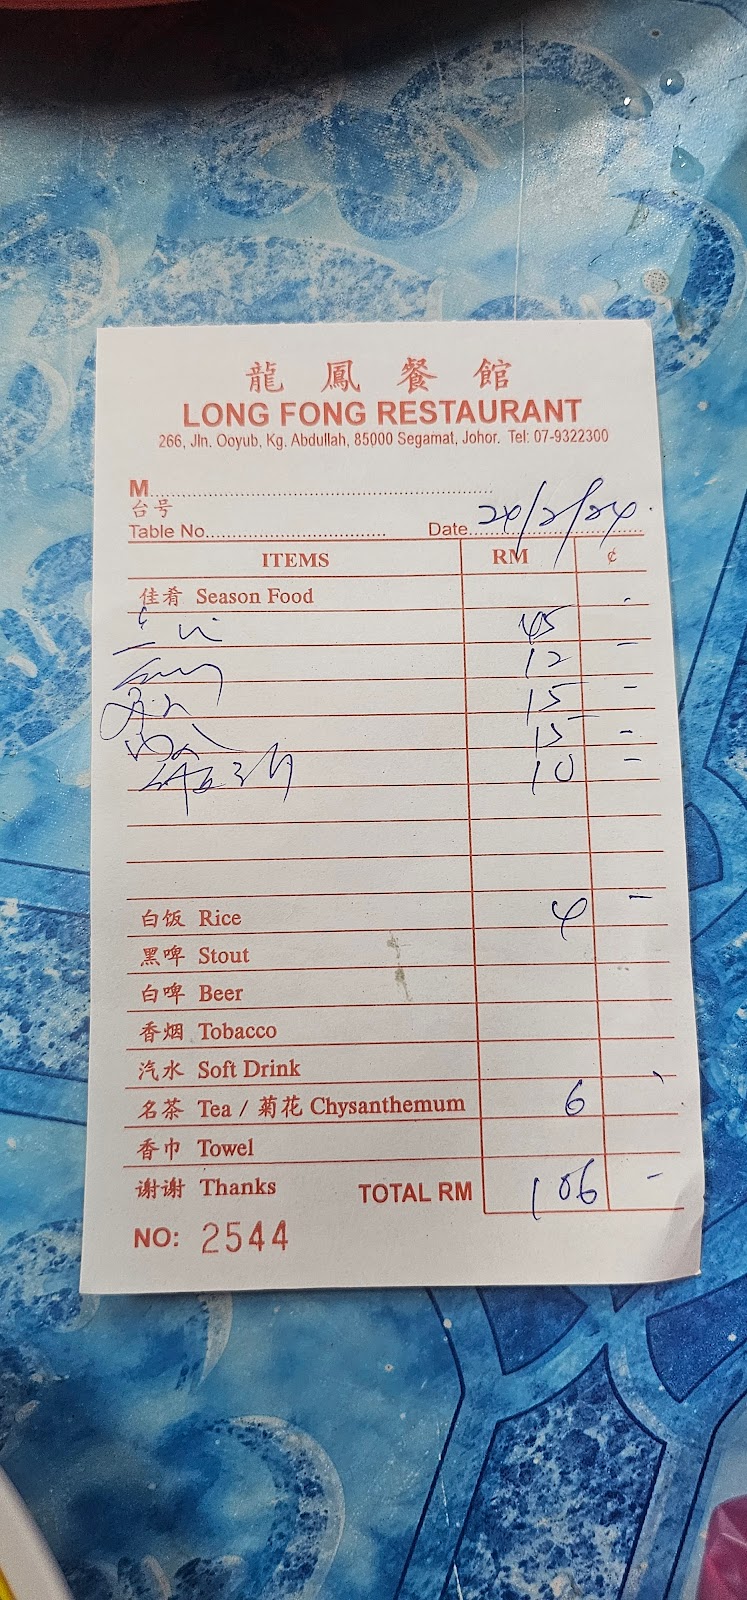 龍鳳餐館
LONG FONG RESTAURANT
266, Jln. Ooyub, Kg. Abdullah, 85000 Segamat, Johor. Tel: 07-9322300
M
台号
Table No. Date 24/2/24
ITEMS RM ¢
佳肴 Season Food
45
12 -
15 -
15 -
10 -
白饭 Rice 4 -
黑啤 Stout
白啤 Beer
香烟 Tobacco
汽水 Soft Drink
名茶 Tea / 菊花 Chysanthemum 6
香巾 Towel
谢谢 Thanks TOTAL RM 106 -
NO: 2544